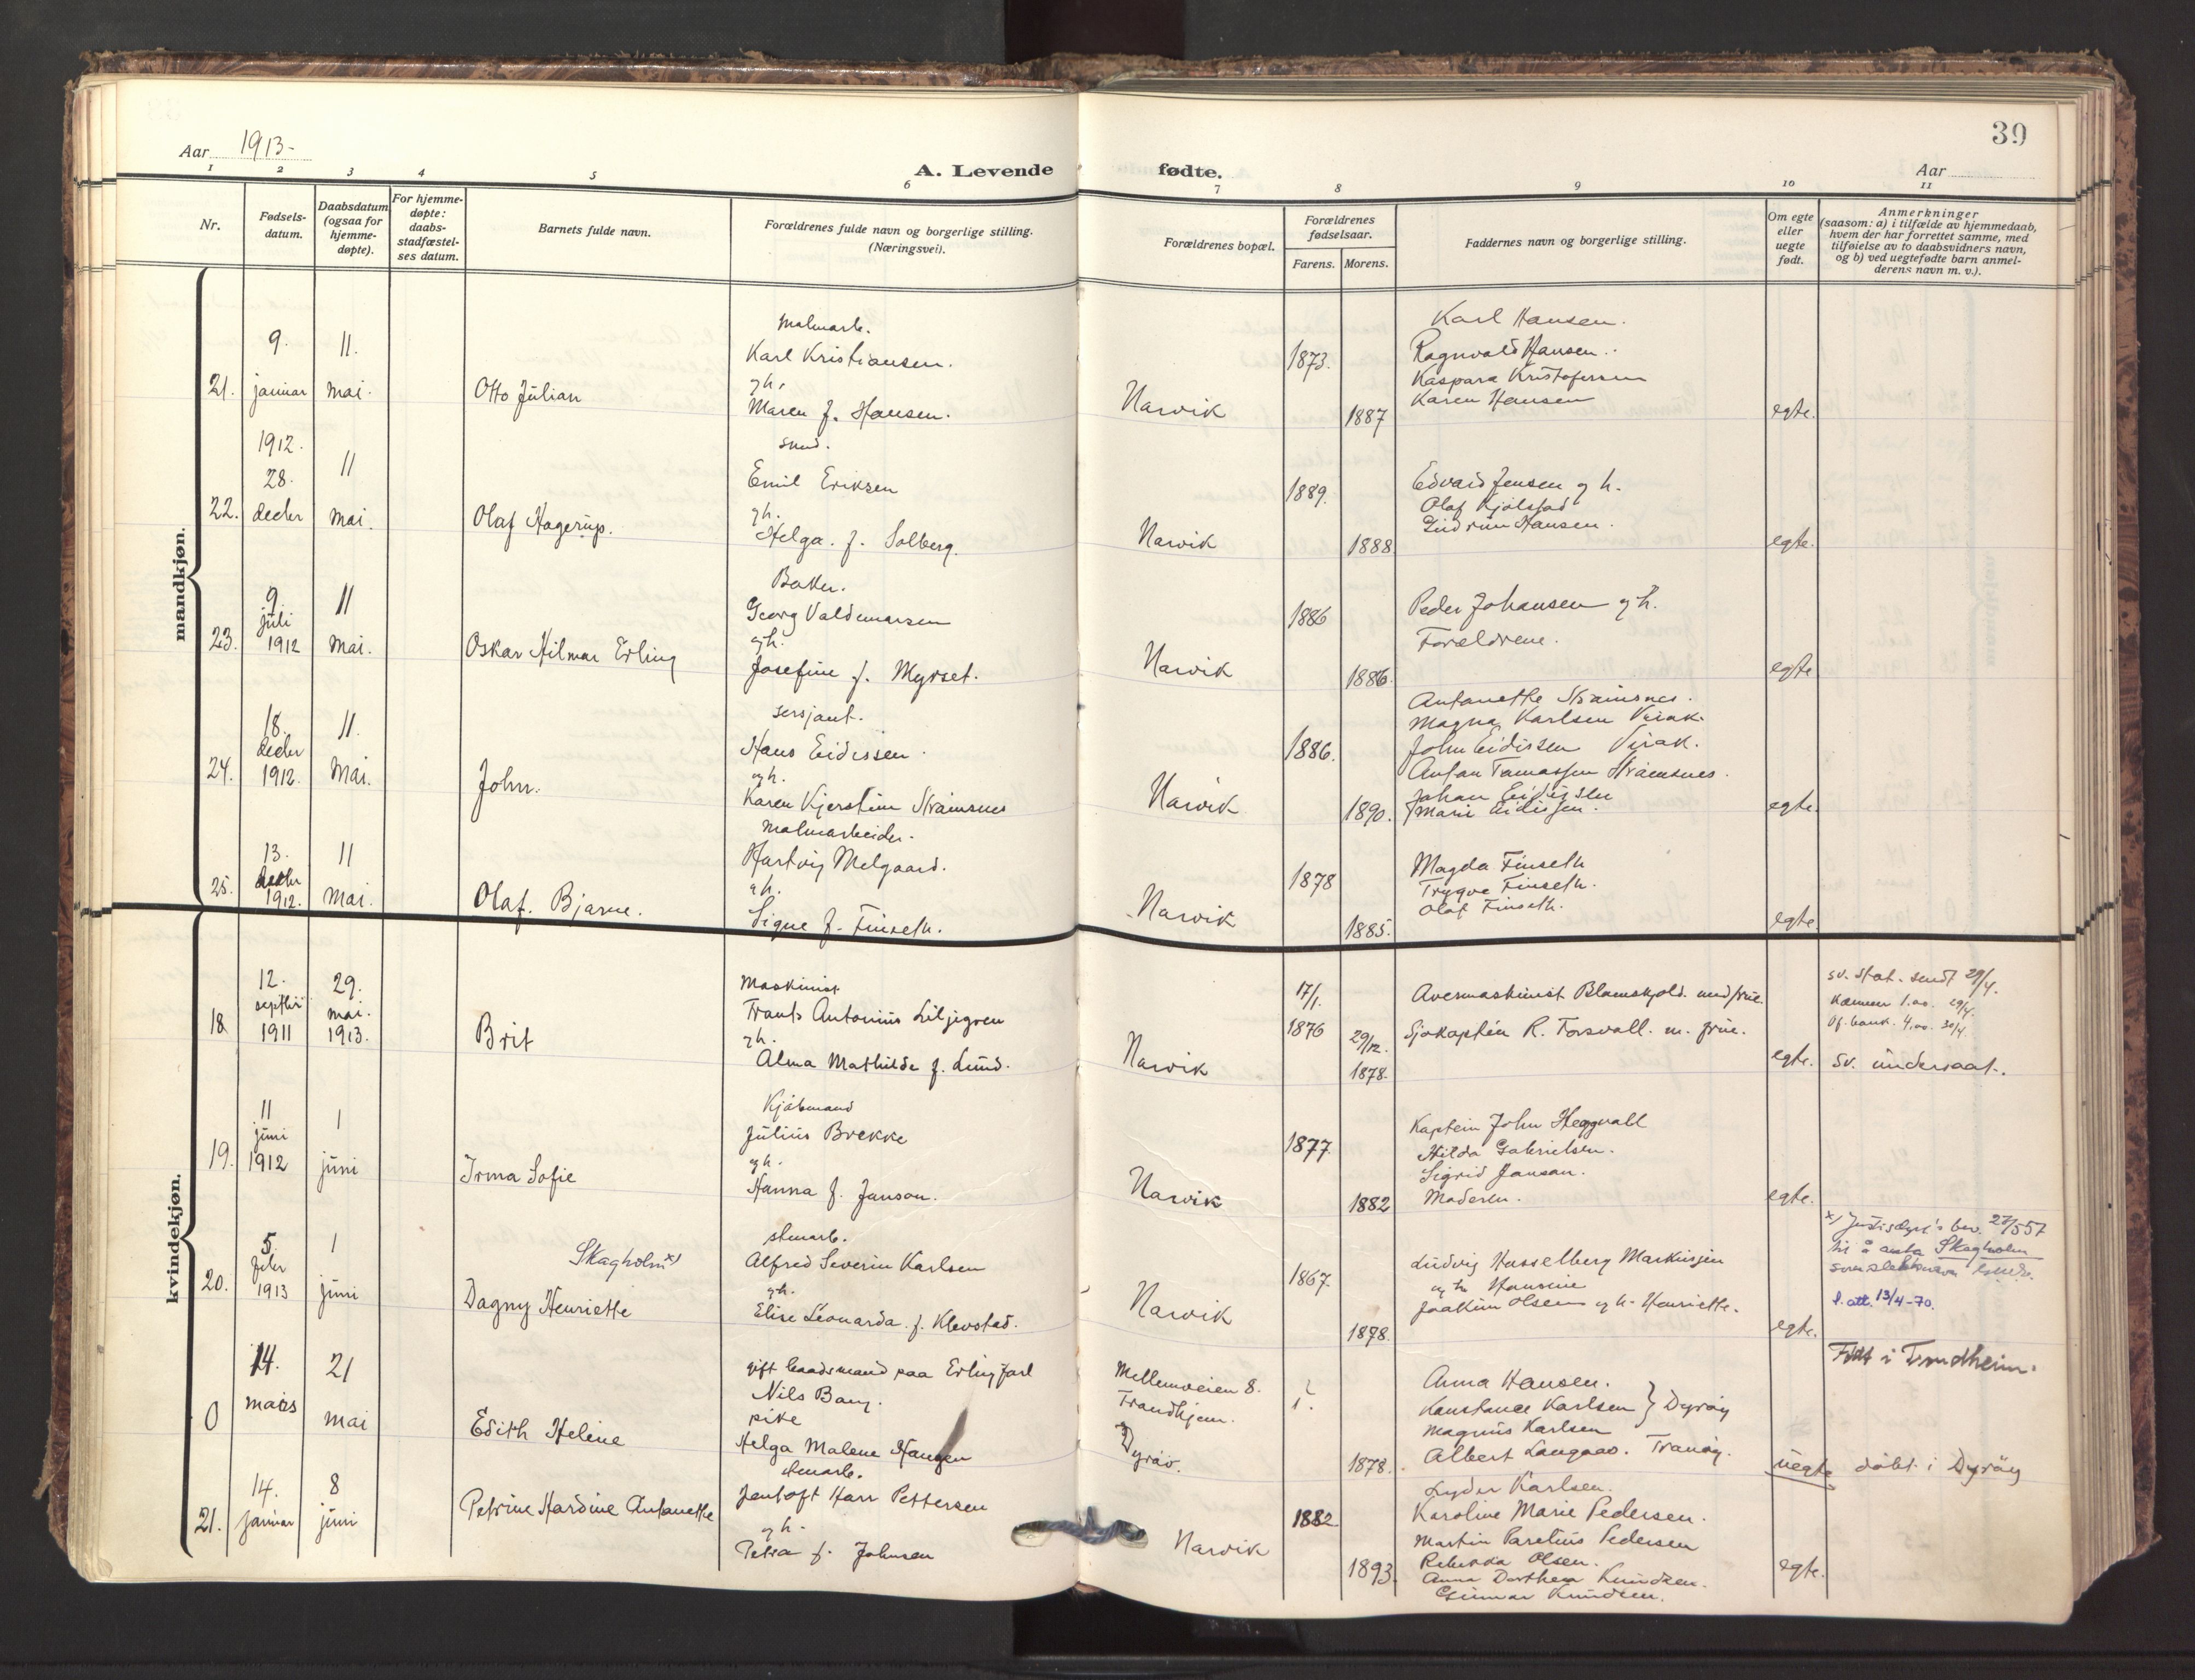 39
Aar 1913-
A. Levende fødte.
Aar
1 2 3 4 5 6 7 8 9 10 11
Nr.
Fødsels-
datum.
Daabsdatum
(ogsaa for
hjemme-
døpte).
For hjemme-
døpte:
daabs-
stadfæstel-
ses datum.
Barnets fulde navn.
Forældrenes fulde navn og borgerlige stilling.
(Næringsvei).
Forældrenes bopæl.
Forældrenes
fødselsaar.
Farens. Morens.
Faddernes navn og borgerlige stilling.
Om egte
eller
uegte
født.
Anmerkninger
(saasom: a) i tilfælde av hjemmedaab,
hvem der har forrettet samme, med
tilføielse av to daabsvidners navn,
og b) ved uegtefødte barn anmel-
derens navn m. v.).
mandkjøn.
21.
9.
januar
11.
mai.
Otto Julian
Malmarb.
Karl Kristiansen.
g h.
Maren f. Hansen.
Narvik
1873.
1887
Karl Hansen.
Ragnvald Hansen.
Kaspara Kristofersen
Karen Hansen
egte.
22.
1912.
28.
decbr
11
mai.
Olaf Hagerup.
smed.
Emil Eriksen
g h.
Helga. f. Solberg.
Narvik
1889.
1888
Edvard Jensen g h.
Olaf Kjølstad
Gudrun Hansen.
egte.
23.
9.
juli
1912
11
mai.
Oskar Hilmar Erling
Baker.
Georg Valdemarsen
g h.
Josefine f. Myrset.
Narvik
1886
1886.
Peder Johansen g h.
Forældrene.
egte
24.
18.
decbr
1912.
11.
Mai.
John.
sersjant.
Hans Eidissen.
g h.
Karen Kjerstine Strømsnes
Narvik
1886.
1890.
Antonette Strømsnes.
Magna Karlsen Virak.
John Eidissen Virak.
Anton Tomassen Strømsnes.
Johan Eidissen
Marie Eidissen.
egte.
25.
13.
decbr
1912.
11
Mai.
Olaf. Bjarne.
Malmarbeider.
Hartvig Melgaard.
g h.
Signe f. Finseth.
Narvik
1878
1885.
Magda Finseth
Trygve Finseth.
Olaf Finseth.
egte
kvindekjøn.
18
12.
septbr
1911
29.
mai.
1913.
Brit
Maskinist
Frants Antonius Liljigren
g h.
Alma Mathilde f. Lund.
Narvik
17/1.
1876
29/12.
1878.
Blomskjold. med frue.
Sjøkaptein R. Torsvall. m. frue.
egte.
sv. stat. sendt 29/4.
1.00. 29/4.
4.00. 30/4.
sv. undersaat.
19.
11
juni
1912
1
juni
Irma Sofie
Kjøbmand
Julius Brekke
g h.
Hanna f. Janson.
Narvik
1877.
1882
Kaptein John Heggvall
Hilda Gabrielsen.
Sigrid Janson.
Moderen.
egte.
20.
5.
febr
1913
1
juni
Skagholm x)
Dagny Henriette
Alfred Severin Karlsen
g h.
Elise Leonarda f. Klevstad.
Narvik
1867.
1878.
Ludvig Hasselberg Markussen
og h Hansine
Joakim Olsen og h. Henriette.
egte.
x) bev. 27/5 57
til å anta Skagholm
som slektsnavn
f. att. 13/4-70.
0
14.
marts
21
mai
Edith Helene
gift baadsmand paa Erling Jarl
Nils Bang.
pike
Helga Malene Haugen
Mellemveien 8.
Trondhjem.
Dyrøy.
?
1878.
Anna Hansen.
Konstance Karlsen } Dyrøy
Magnus Karlsen
Albert Langaas. Tranøy.
Lyder Karlsen.
uegte
Født i Trondheim.
døbt i Dyrøy
21.
14.
januar
8
juni
Petrine Hardine Antonette
Jentoft Harr Pettersen
g h.
Petra f. Johnsen
Narvik
1882.
1893.
Karoline Marie Pedersen.
Martin Parelius Pedersen
Rebekka Olsen.
Anna Dorthea Knudsen.
Gunnar Knudsen.
egte.